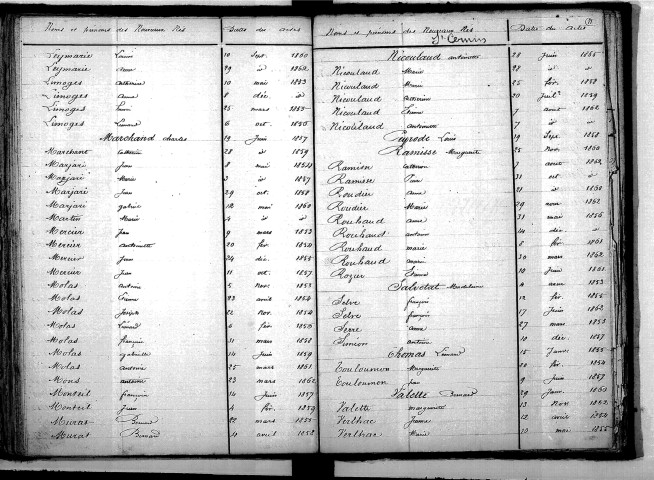 Noms et prénoms des Nouveaux Nés Dates des actes
Leymarie Louis 10 Sept. 1860
Leymarie 29 id 1862
Limoges Catherine 10 mai 1853
Limoges Anne 8 déc. id
Limoges 25 mars 1855
Limoges Léonard 6 oct. 1856
Marchand Charles 19 Juin 1857
Marchant Catherine 28 id 1859
Marjari Jean 8 mai
Marjari Marie 3 id 1857
Marjari Jean 29 oct. 1858
Marjari gabriel 12 mai 1860
Martin Marie 4 id id
Mercier Jean 9 mars 1853
Mercier Antoinette 20 fév. 1854
Mercier Jean 24 déc. 1855
Mercier Jean 11 oct. 1857
Molas Antoine 5 Nov. 1853
Molas Pierre 23 avril 1854
Molas Joseph 22 Nov. 1854
Molas Léonard 6 fév. 1856
Molas françois 31 mars 1858
Molas gabrielle 14 Juin 1859
Molas Antoine 25 mars 1861
Mons 23 mars 1862
Monteil françois 14 Juin 1857
Monteil Jean 4 fév. 1859
Muras Bernard 22 mars 1855
Muras Bernard 11 avril 1858
Noms et prénoms des Nouveaux Nés Dates des Actes
St Cernin
Nicoulaud antoinette 28 Juin 1855
Nicoulaud Marie 28 id id
Nicoulaud Marie 25 fév. 1858
Nicoulaud Catherine 20 Juil. 1859
Nicoulaud 7 août 1862
Nicoulaud Antoinette 7 id id
Peyrode Louis 19 Sept. 1858
Ramisse Marguerite 25 Nov. 1860
Ramisse 1 août 1862
Ramisse 31 oct. id
Roudier anne 21 id 1860
Roudier Marie 29 nov. 1862
Rouhaud anne 31 mai 1856
Rouhaud antoine 14 déc. id
Rouhaud marie 8 fév. 1861
Rouhaud 30 mars 1862
Rozier 10 Juin 1861
Salvetat Madeleine 4 1853
Selve françois 12 fév. 1855
Selve françois 17 Juin 1862
Serre anne 27 mars 1853
Siméon Antoine 10 déc. 1857
Thomas Léonard 15 Janv. 1855
Touloumon Marguerite 20 fév. 1854
Touloumon 9 Juin 1857
Valette Bernard 29 Janv. 1860
Valette marguerite 13 Nov. 1862
Verlhac Jeanne 12 août 1854
Verlhac Marie 10 mai 1856